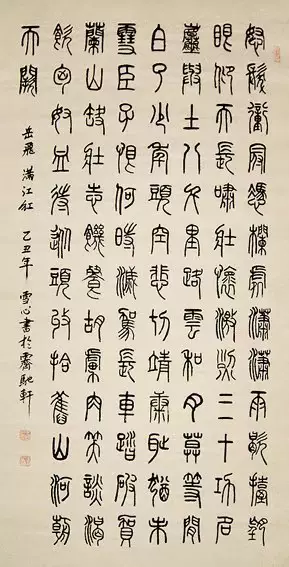 怒髮衝冠憑欄處瀟瀟雨歇擡望
眼仰天長嘯壯懷激烈三十功名
塵與土八千里路雲和月莫等閒
白了少年頭空悲切靖康恥猶未
雪臣子恨何時滅駕長車踏破賀
蘭山缺壯志饑餐胡虜肉笑談渴
飲匈奴血待從頭收拾舊山河朝
天闕
岳飛 滿江紅 乙丑年 雪心書於霽馳軒